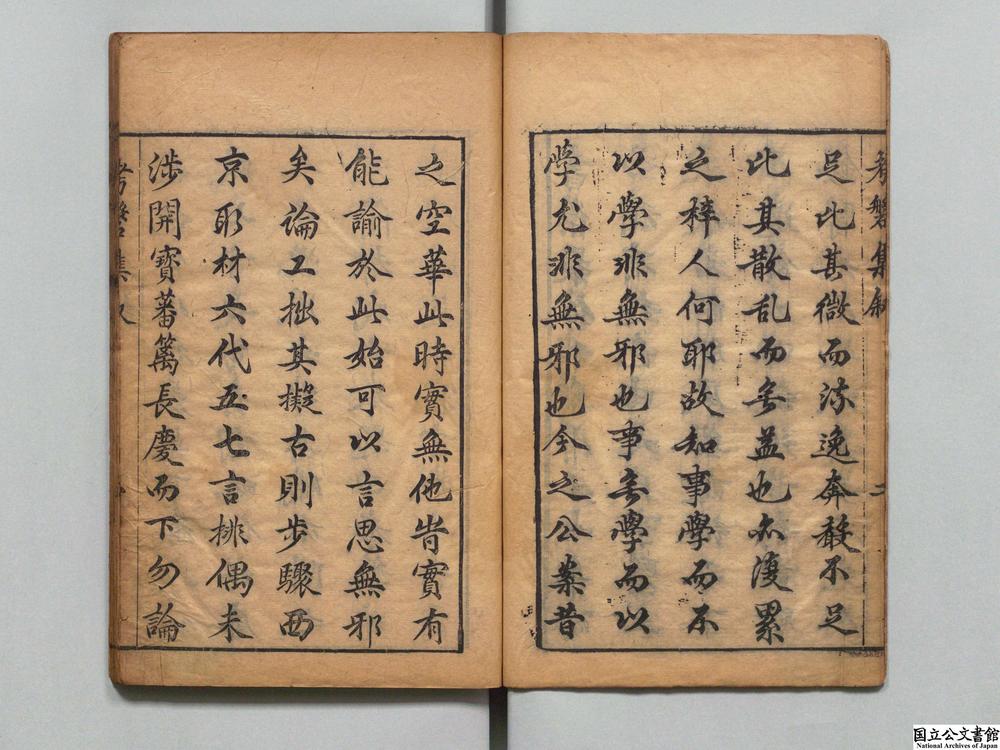 考槃集叙
二
足此甚微而流逸奔馥不足
此其散乱而無益也亦復累
之梓人何耶故知事學而不
以學非無邪也事無學而以
學尤非無邪也今之公案昔
之空華此時實無他皆實有
能諭於此始可以言思無邪
矣論工拙其擬古則步驟西
京取材六代五七言排偶未
涉開寶蕃籬長慶而下勿論
国立公文書館
National Archives of Japan